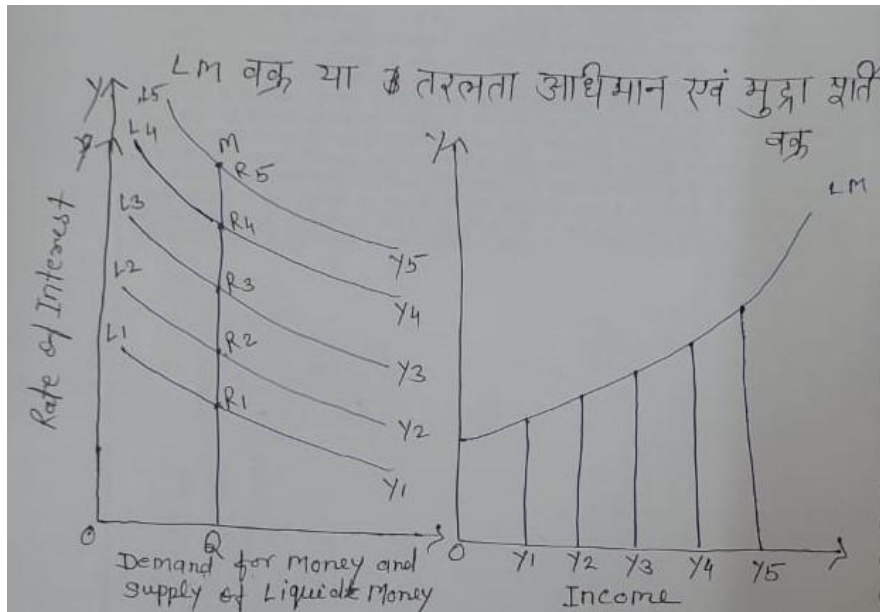 LM वक्र या तरलता अधिमान एवं मुद्रा पूर्ति
वक्र
Y
L5
L4
L3
L2
L1
M
R5
R4
R3
R2
R1
Y5
Y4
Y3
Y2
Y1
Rate of Interest
O
Q
Demand for Money and
Supply of Liquid Money
Y
LM
O
Y1 Y2 Y3 Y4 Y5
Income